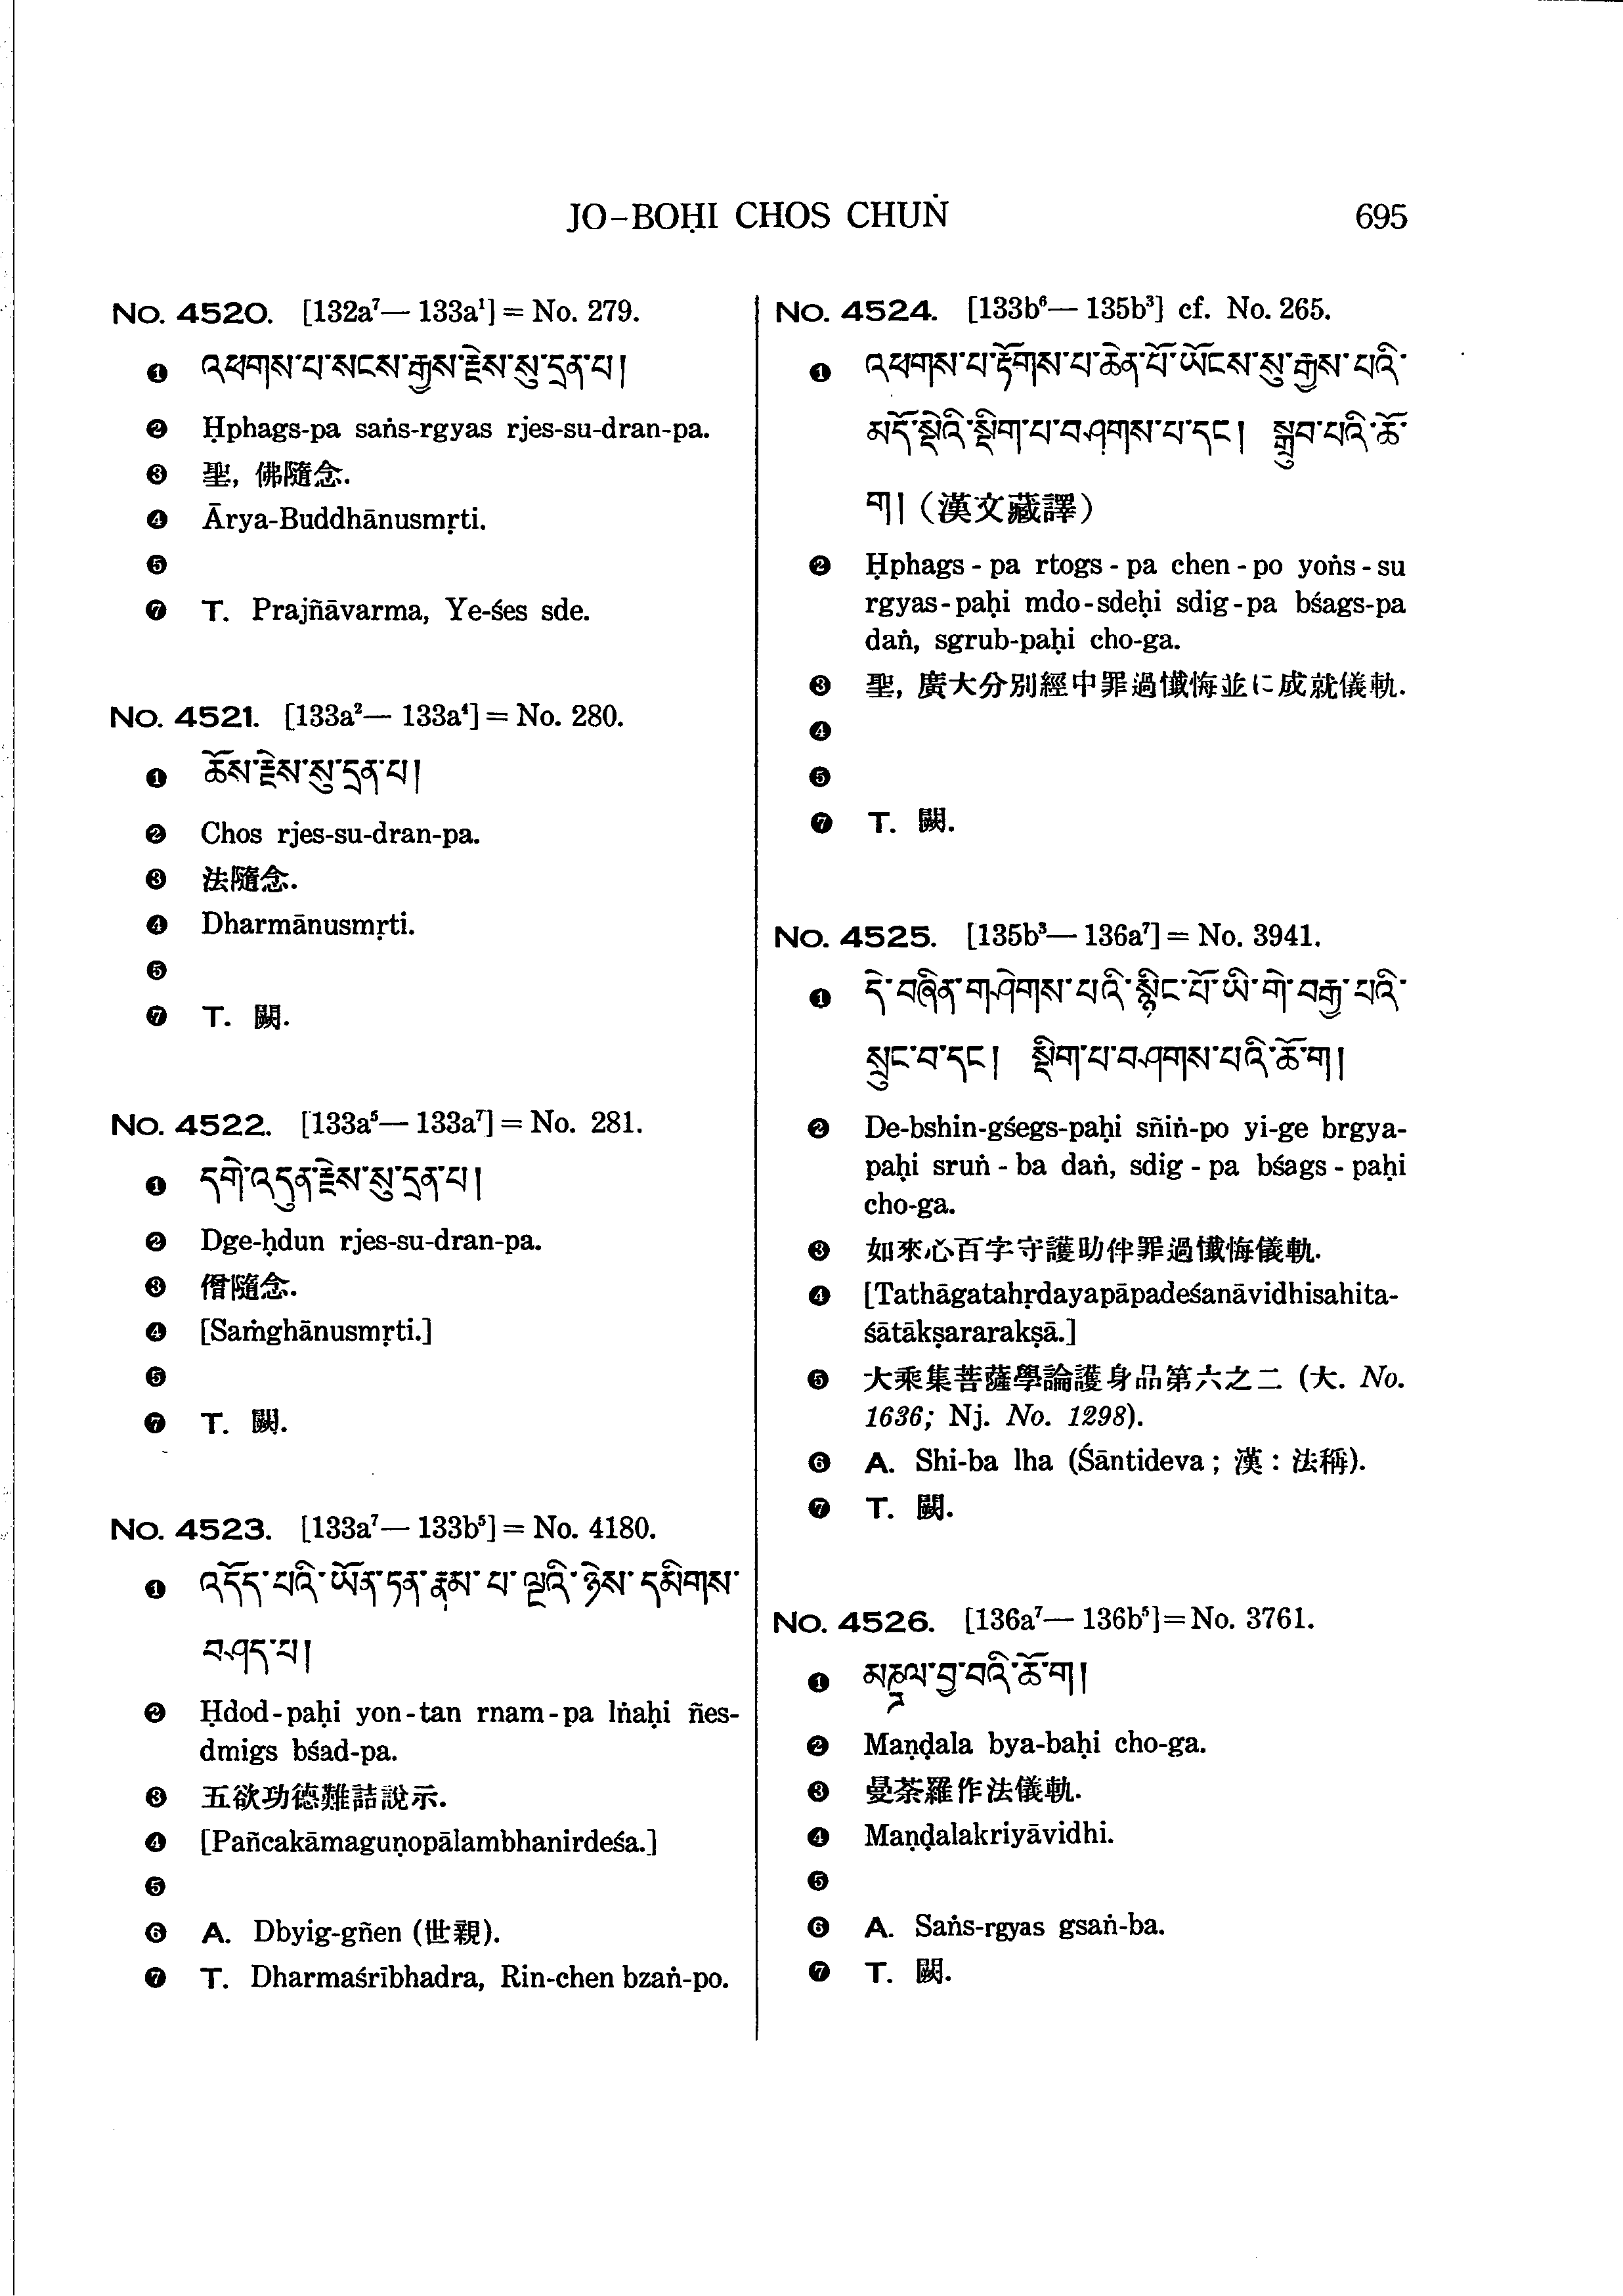 JO-BOḤI CHOS CHUṄ 695
No. 4520. [132a⁷— 133a¹] = No. 279.
❶ འཕགས་པ་སངས་རྒྱས་རྗེས་སུ་དྲན་པ།
❷ Ḥphags-pa saṅs-rgyas rjes-su-dran-pa.
❸ 聖, 佛隨念.
❹ Ārya-Buddhānusmṛti.
❺
❼ T. Prajñāvarma, Ye-śes sde.
No. 4521. [133a²— 133a⁴] = No. 280.
❶ ཆོས་རྗེས་སུ་དྲན་པ།
❷ Chos rjes-su-dran-pa.
❸ 法隨念.
❹ Dharmānusmṛti.
❺
❼ T. 闕.
No. 4522. [133a⁵— 133a⁷] = No. 281.
❶ དགེ་འདུན་རྗེས་སུ་དྲན་པ།
❷ Dge-ḥdun rjes-su-dran-pa.
❸ 僧隨念.
❹ [Saṁghānusmṛti.]
❺
❼ T. 闕.
No. 4523. [133a⁷— 133b⁵] = No. 4180.
❶ འདོད་པའི་ཡོན་ཏན་རྣམ་པ་ལྔའི་ཉེས་དམིགས་
བཤད་པ།
❷ Ḥdod-paḥi yon-tan rnam-pa lṅaḥi ñes-
dmigs bśad-pa.
❸ 五欲功德難詰說示.
❹ [Pañcakāmaguṇopālambhanirdeśa.]
❺
❻ A. Dbyig-gñen (世親).
❼ T. Dharmaśrībhadra, Rin-chen bzaṅ-po.
No. 4524. [133b⁶— 135b³] cf. No. 265.
❶ འཕགས་པ་རྟོགས་པ་ཆེན་པོ་ཡོངས་སུ་རྒྱས་པའི་
མདོ་སྡེའི་སྡིག་པ་བཤགས་པ་དང། སྒྲུབ་པའི་ཆོ་
ག། (漢文藏譯)
❷ Ḥphags-pa rtogs-pa chen-po yoṅs-su
rgyas-paḥi mdo-sdeḥi sdig-pa bśags-pa
daṅ, sgrub-paḥi cho-ga.
❸ 聖, 廣大分別經中罪過懺悔並に成就儀軌.
❹
❺
❼ T. 闕.
No. 4525. [135b³— 136a⁷] = No. 3941.
❶ དེ་བཞིན་གཤེགས་པའི་སྙིང་པོ་ཡི་གེ་བརྒྱ་པའི་
སྲུང་བ་དང། སྡིག་པ་བཤགས་པའི་ཆོ་ག།
❷ De-bshin-gśegs-paḥi sñiṅ-po yi-ge brgya-
paḥi sruṅ-ba daṅ, sdig-pa bśags-paḥi
cho-ga.
❸ 如來心百字守護助伴罪過懺悔儀軌.
❹ [Tathāgatahṛdayapāpadeśanāvidhisahita-
śātākṣararakṣā.]
❺ 大乘集菩薩學論護身品第六之二 (大. No.
1636; Nj. No. 1298).
❻ A. Shi-ba lha (Śāntideva; 漢: 法稱).
❼ T. 闕.
No. 4526. [136a⁷— 136b⁵]=No. 3761.
❶ མཎྜལ་བྱ་བའི་ཆོ་ག།
❷ Maṇḍala bya-baḥi cho-ga.
❸ 曼荼羅作法儀軌.
❹ Maṇḍalakriyāvidhi.
❺
❻ A. Saṅs-rgyas gsaṅ-ba.
❼ T. 闕.